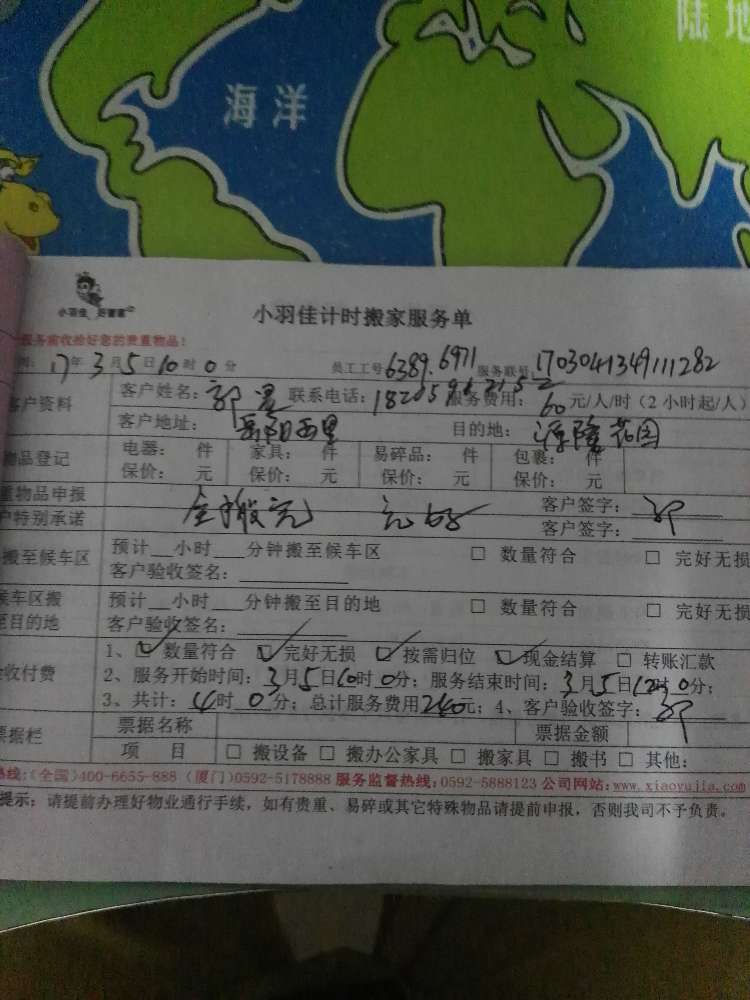 陆地
海洋
小羽佳 好管家
小羽佳计时搬家服务单
服务前收拾好您的贵重物品！
17年3月5日10时0分 员工工号6389.6971 服务联号：1703041349111282
客户资料 客户姓名：郭 联系电话： 服务费用：60元/人/时（2小时起/人）
客户地址：岳阳西里 目的地：源隆花园
物品登记 电器： 件 家具： 件 易碎品： 件 包裹： 件
保价： 元 保价： 元 保价： 元 保价： 元
重物品申报 客户签字：
户特别承诺 全搬完 完好 客户签字：郭
搬至候车区 预计__小时___分钟搬至候车区 □ 数量符合 □ 完好无损
客户验收签名：
候车区搬至目的地 预计__小时___分钟搬至目的地 □ 数量符合 □ 完好无损
客户验收签名：
验收付费 1、☑数量符合 ☑完好无损 ☑按需归位 ☑现金结算 □ 转账汇款
2、服务开始时间：3月5日10时0分；服务结束时间：3月5日12时0分；
3、共计：4时0分；总计服务费用240元；4、客户验收签字：郭
票据栏 票据名称 票据金额
项 目 □ 搬设备 □ 搬办公家具 □ 搬家具 □ 搬书 □ 其他：
热线：(全国)400-6655-888 (厦门)0592-5178888 服务监督热线：0592-5888123 公司网站：www.xiaoyujia.com
提示：请提前办理好物业通行手续，如有贵重、易碎或其它特殊物品请提前申报，否则我司不予负责。